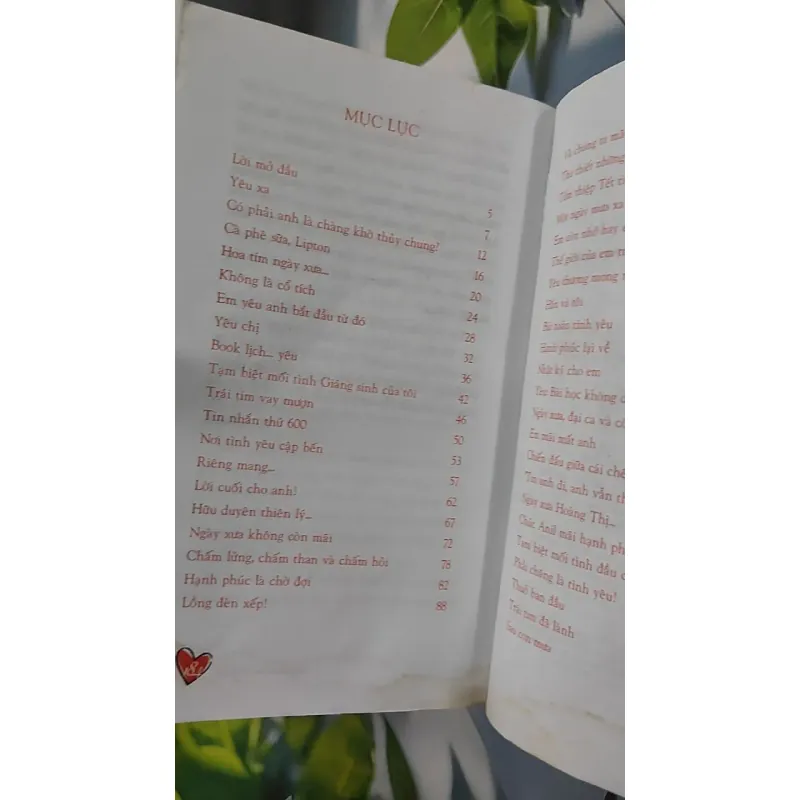 MỤC LỤC
Lời mở đầu 5
Yêu xa 7
Có phải anh là chàng khờ thủy chung? 12
Cà phê sữa, Lipton 16
Hoa tím ngày xưa... 20
Không là cổ tích 24
Em yêu anh bắt đầu từ đó 28
Yêu chị 32
Book lịch... yên 36
Tạm biệt mối tình Giáng sinh của tôi 42
Trái tim vay mượn 46
Tin nhắn thứ 600 50
Nơi tình yêu cập bến 53
Riêng mang... 57
Lời cuối cho anh! 62
Hữu duyên thiên lý... 67
Ngày xưa không còn mãi 72
Chấm lửng, chấm than và chấm hỏi 78
Hạnh phúc là chờ đợi 82
Lồng đèn xếp! 88
Và chúng ta
những
Tấm thiệp Tết
Một ngày mưa
Em còn nhớ hay
Thế giới của em
Yêu thương mong
Hắn và tôi
Bài toán tình yêu
Hạnh phúc lại về
Nhật kí cho em
Bài học không
Ngày xưa, đại ca và
Em mãi mất anh
Chiến đấu giữa cái
Tim anh đi, anh vẫn
Ngày xưa Hoàng Thị...
Chúc Anh mãi hạnh
Tạm biệt mối tình đầu
Phải chăng là tình yêu!
Thuở ban đầu
Trái tim đã lành
Sau cơn mưa